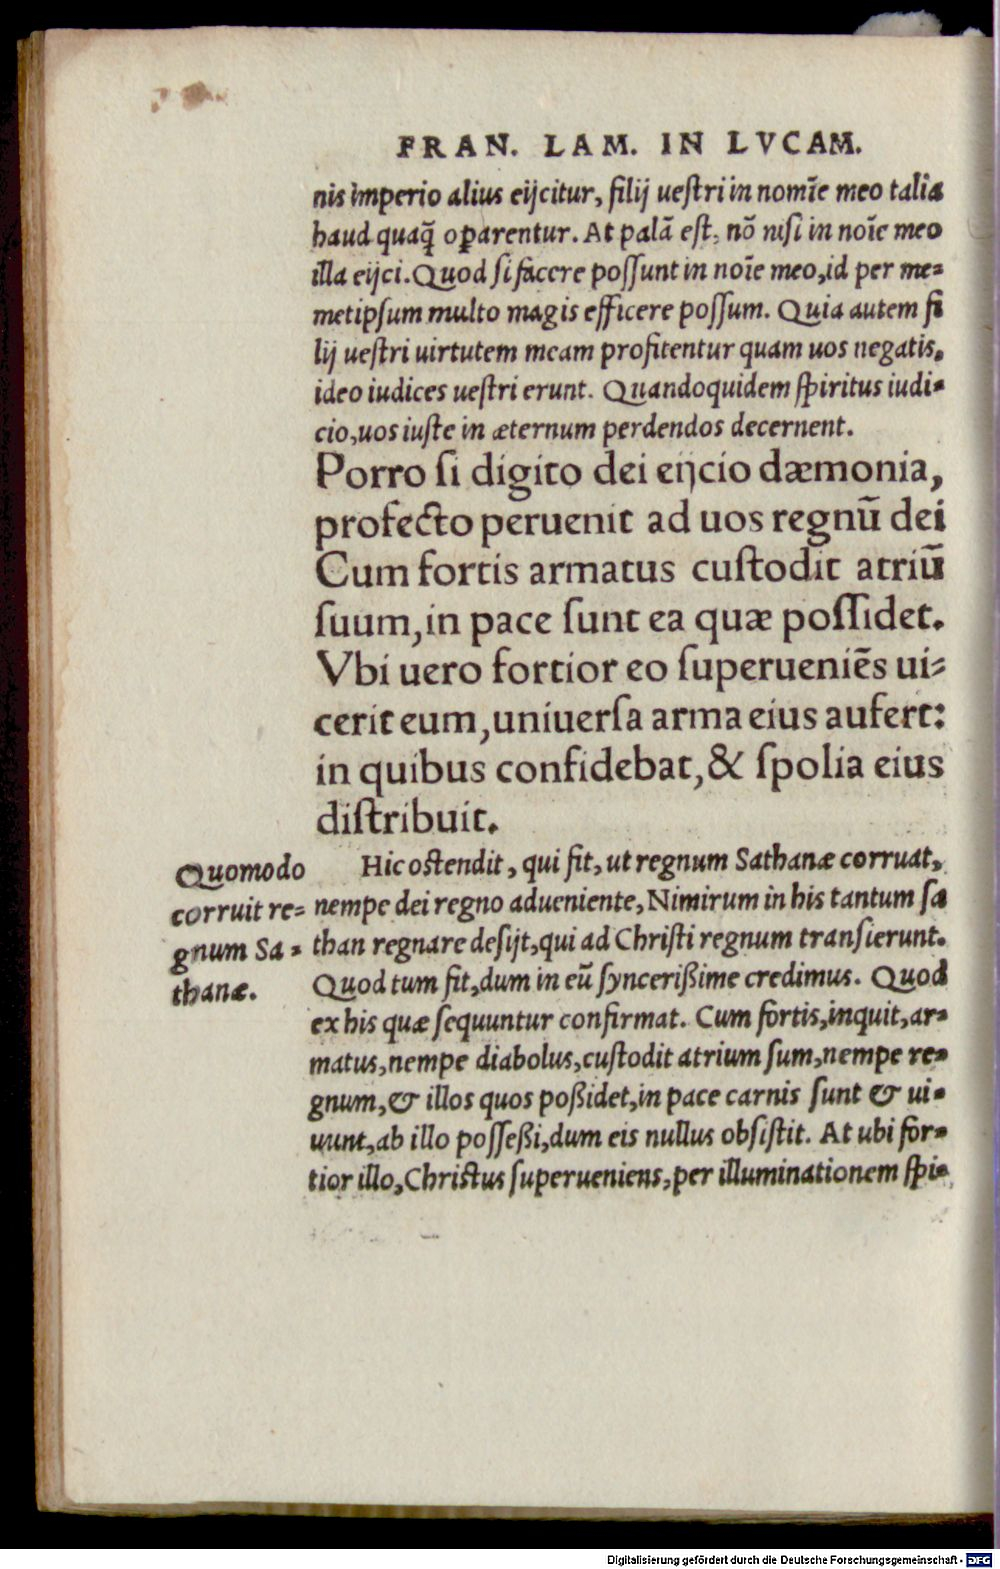 FRAN. LAM. IN LVCAM.
nis imperio alius eijcitur, filij ueſtri in nomīe meo talia
haud quaq̄ꝫ oꝑarentur. At palā eſt, nō niſi in noīe meo
illa eijci. Quod ſi facere poſſunt in noīe meo, id per me-
metipſum multo magis efficere poſſum. Quia autem fi
lij ueſtri uirtutem meam profitentur quam uos negatis,
ideo iudices ueſtri erunt. Quandoquidem ſpiritus iudi-
cio, uos iuſte in æternum perdendos decernent.
Porro ſi digito dei eijcio dæmonia,
profecto peruenit ad uos regnū dei
Cum fortis armatus cuſtodit atriū
ſuum, in pace ſunt ea quæ poſſidet.
Vbi uero fortior eo ſuperueniēs ui-
cerit eum, uniuerſa arma eius aufert:
in quibus confidebat, & ſpolia eius
diſtribuit.
Quomodo
corruit re-
gnum Sa-
thanæ.
Hic oſtendit, qui fit, ut regnum Sathanæ corruat,
nempe dei regno adueniente, Nimirum in his tantum ſa
than regnare deſijt, qui ad Chriſti regnum tranſierunt.
Quod tum fit, dum in eū ſynceriß​ime credimus. Quod
ex his quæ ſequuntur confirmat. Cum fortis, inquit, ar-
matus, nempe diabolus, cuſtodit atrium ſum, nempe re-
gnum, & illos quos poßidet, in pace carnis ſunt & ui-
uunt, ab illo poſſeßi, dum eis nullus obſiſtit. At ubi for-
tior illo, Chriſtus ſuperueniens, per illuminationem ſpi-
Digitalisierung gefördert durch die Deutsche Forschungsgemeinschaft - DFG